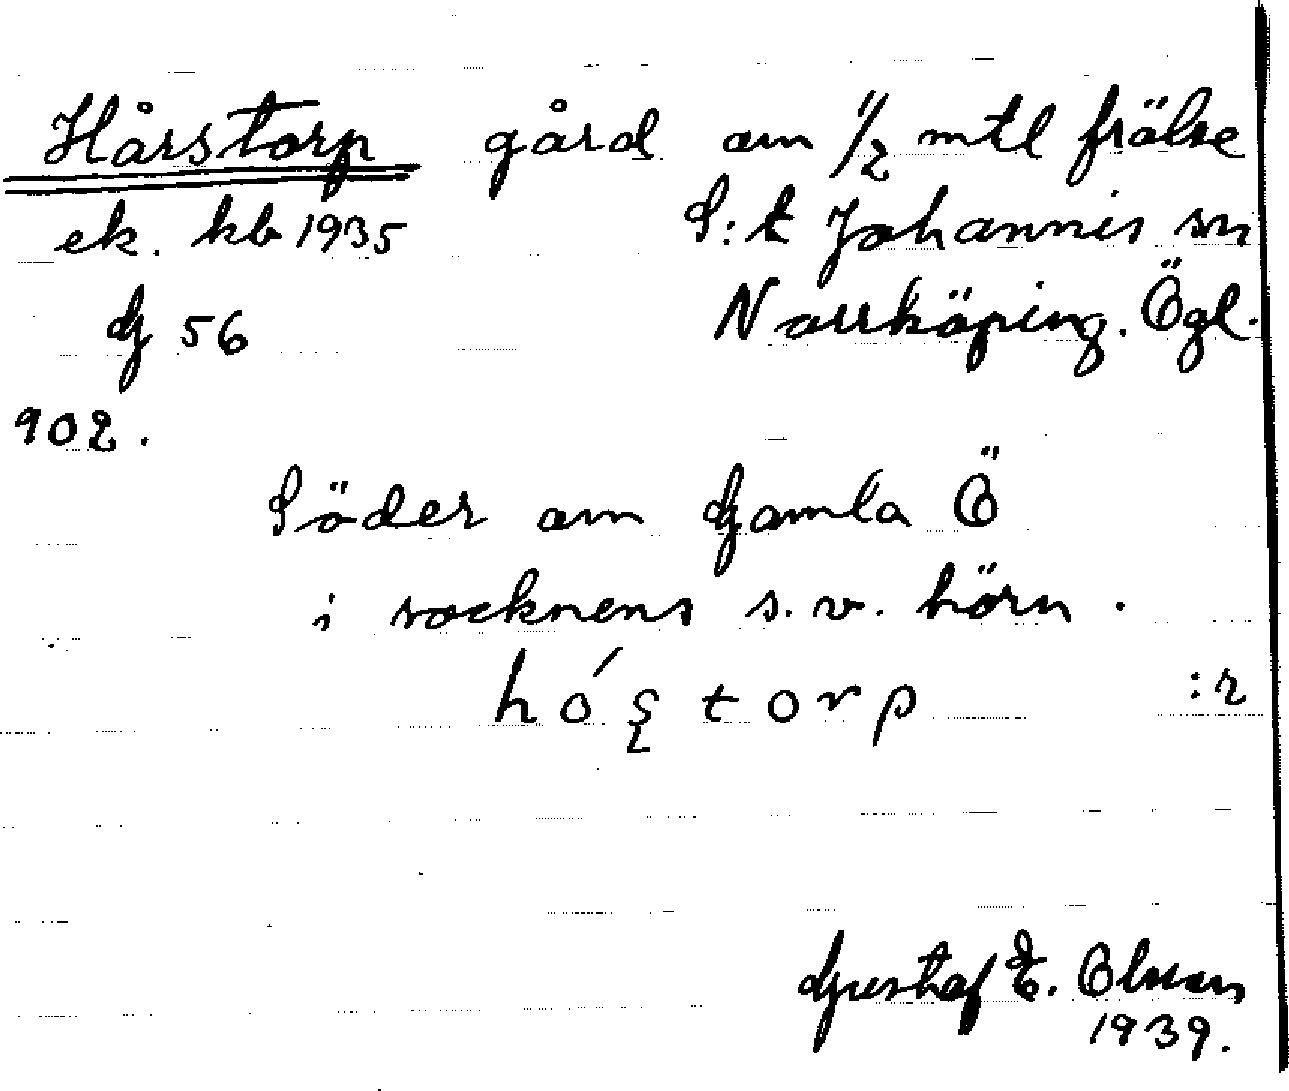 Hårstorp gård om 1/2 mtl frälse
ek. kb 1935 S:t Johannis sn
G 56 Norrköping. Ögl.
902.
Söder om Gamla Ö
i socknens s.v. hörn.
hó̜ştorp :r
Gustaf E. Olsson
1939.